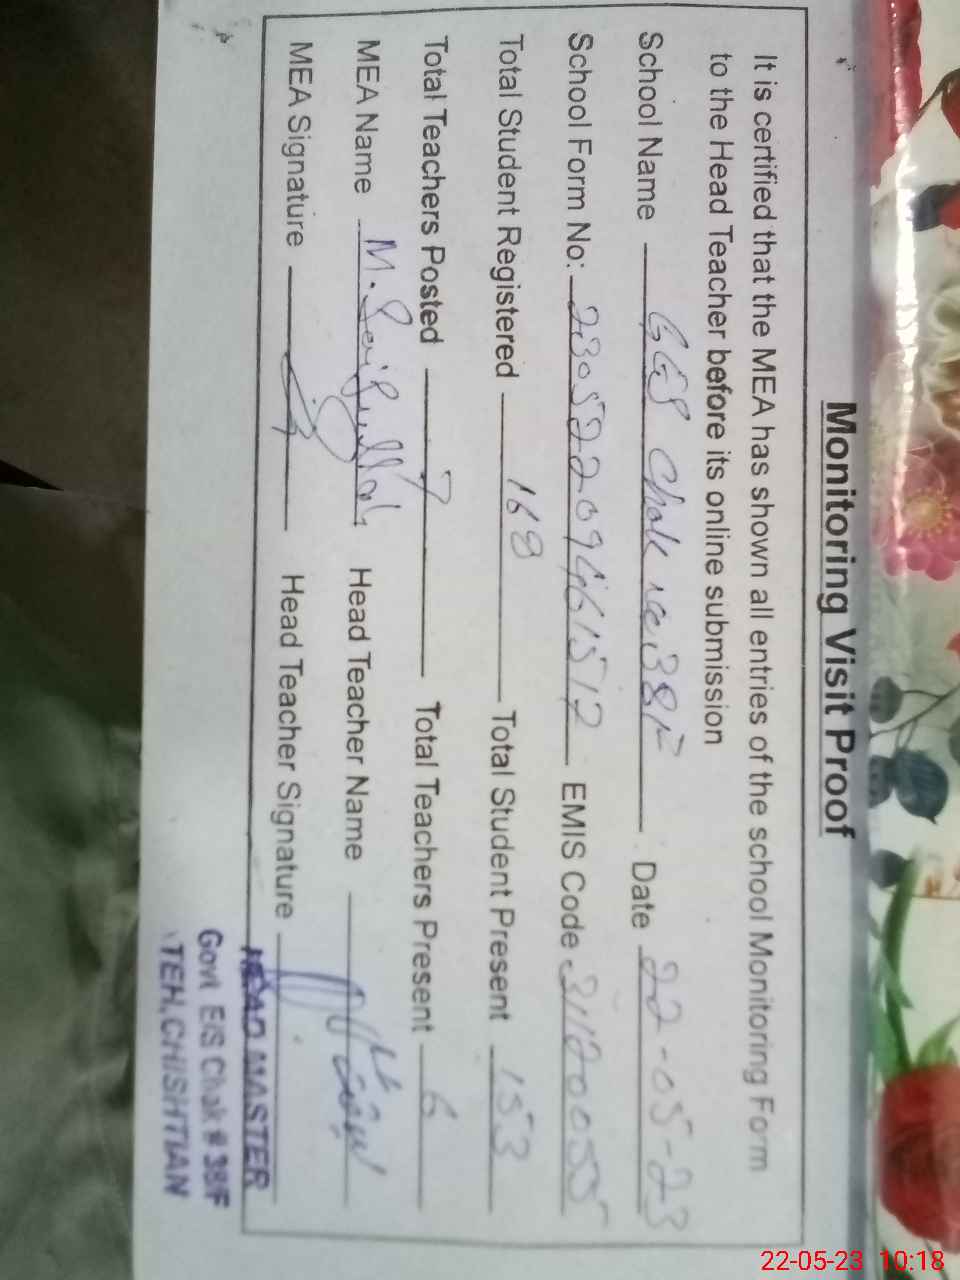 Monitoring Visit Proof
It is certified that the MEA has shown all entries of the school Monitoring Form
to the Head Teacher before its online submission
School Name GES Chak no 38F Date 22-05-23
School Form No: 23052209461512 EMIS Code 31120055
Total Student Registered 168 Total Student Present 153
Total Teachers Posted 7 Total Teachers Present 6
MEA Name M. Saifullah Head Teacher Name
MEA Signature Head Teacher Signature
HEAD MASTER
Govt. E/S Chak # 38/F
TEH, CHISHTIAN
22-05-23 10:18